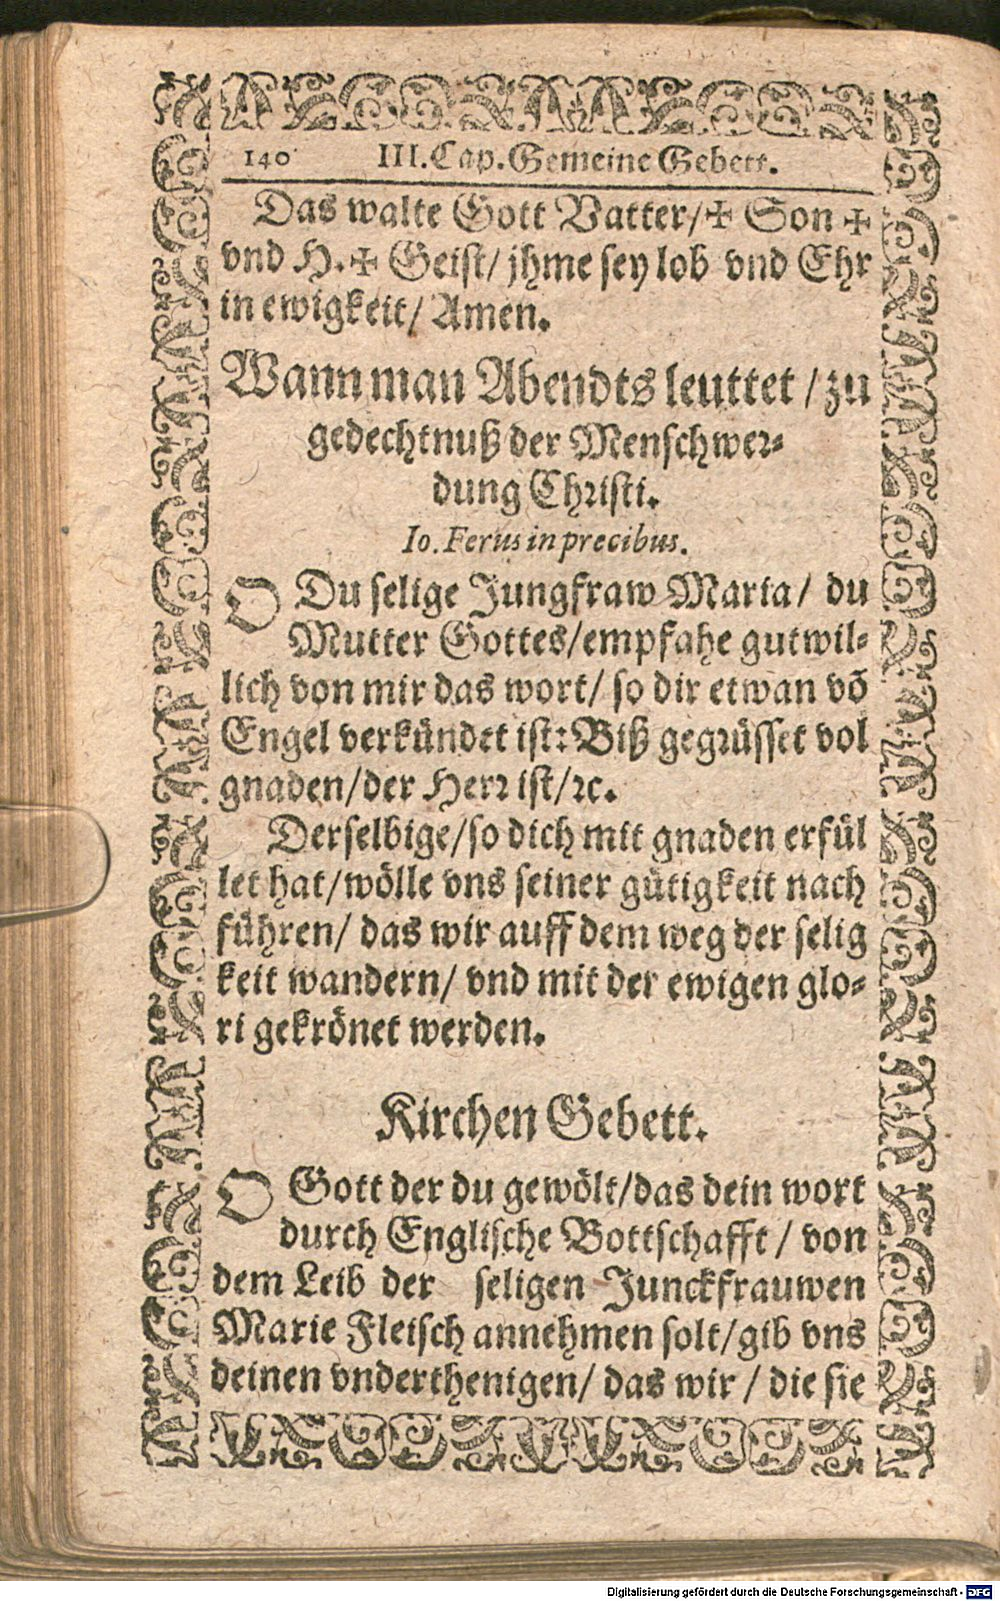 140 III. Cap. Gemeine Gebett.
Das walte Gott Vatter/✠ Son ✠
vnd H.✠ Geist/ jhme sey lob vnd Ehr
in ewigkeit/ Amen.
Wann man Abendts leuttet / zu
gedechtnuß der Menschwer⸗
dung Christi.
Io. Ferus in precibus.
O Du selige Jungfraw Maria/ du
Mutter Gottes/empfahe gutwil⸗
lich von mir das wort/ so dir etwan võ
Engel verkündet ist: Biß gegrüsset vol
gnaden/der Herr ist/ꝛc.
Derselbige/so dich mit gnaden erfül
let hat/wölle vns seiner gütigkeit nach
führen/ das wir auff dem weg der selig
keit wandern/ vnd mit der ewigen glo⸗
ri gekrönet werden.
Kirchen Gebett.
O Gott der du gewölt/das dein wort
durch Englische Bottschafft / von
dem Leib der seligen Junckfrauwen
Marie Fleisch annehmen solt/gib vns
deinen vnderthenigen/ das wir / die sie
Digitalisierung gefördert durch die Deutsche Forschungsgemeinschaft - DFG